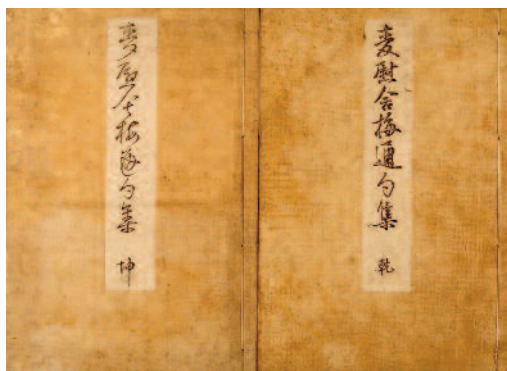 麦慰舎梅通句集 乾
麦慰舎梅通句集 坤